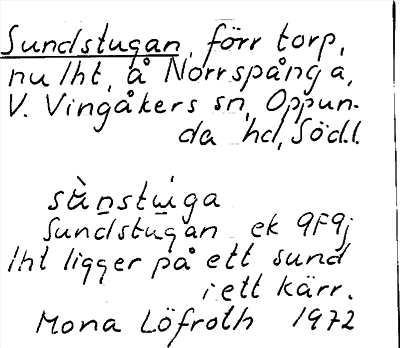 Sundstugan, förr torp,
nu lht, å Norrspånga,
V. Vingåkers sn, Oppun-
da hd, Södl.
sùn̲stẃ̲ga
Sundstugan ek 9F9j
lht ligger på ett sund
i ett kärr.
Mona Löfroth 1972